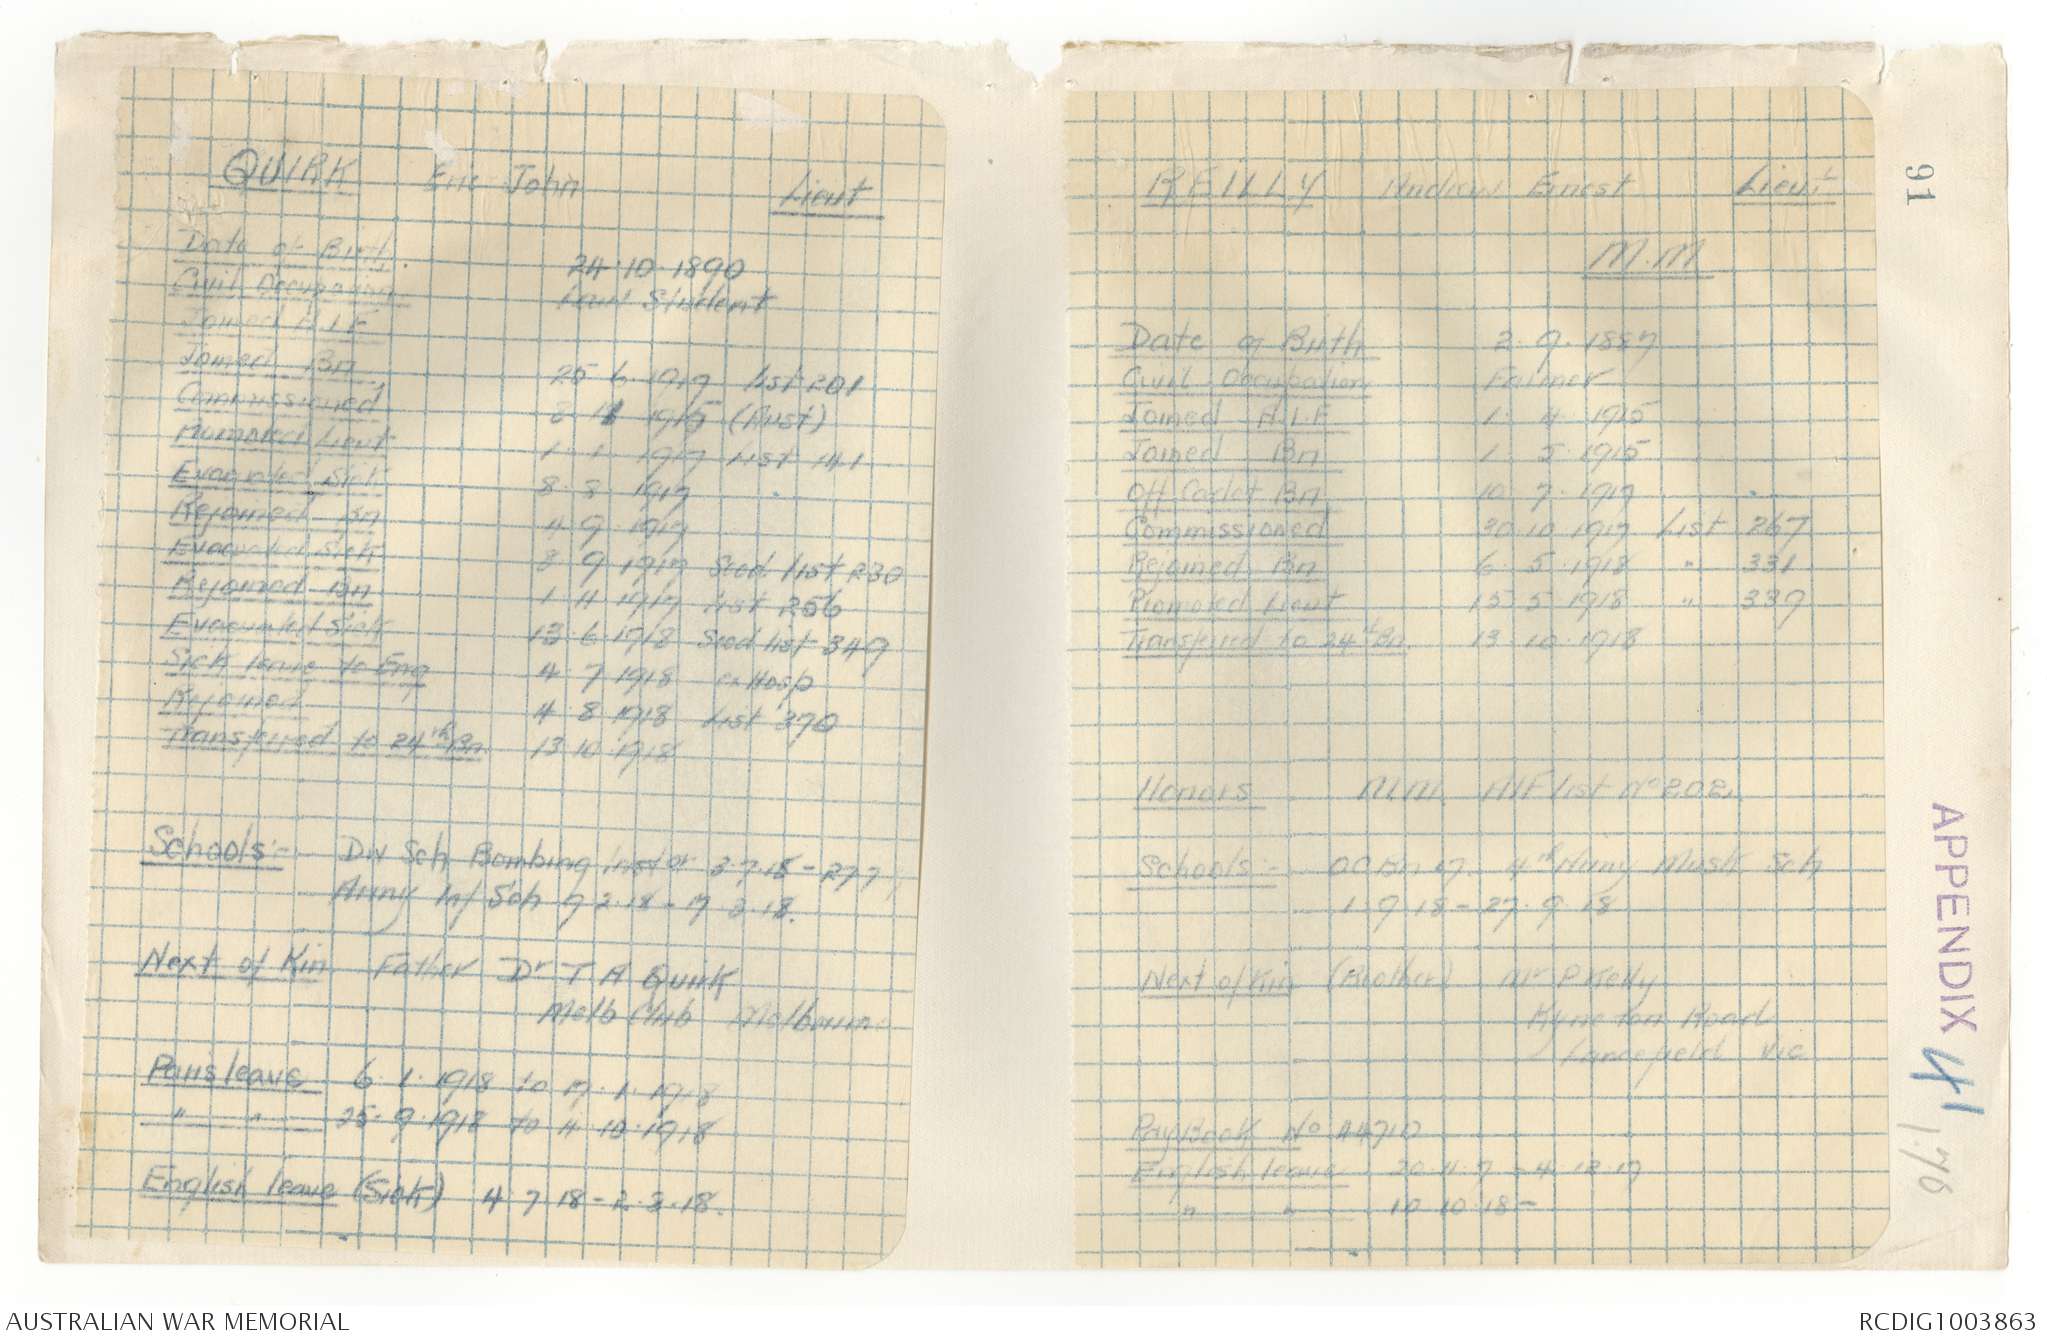 QUIRK Eric John Lieut
Date of Birth 24.10.1890
Civil Occupation Law Student
Joined A.I.F
Joined Bn 25 6 1917 List 201
Commissioned 8 1915 (Aust)
Promoted Lieut 1. 1. 1917 List 141
Evacuated Sick 8. 8. 1917
Rejoined Bn 4 9. 1917
Evacuated Sick 8. 9 1917 Secd list 230
Rejoined Bn 1 11 1917 List 256
Evacuated Sick 13. 6. 1918 Secd list 349
Sick leave to Eng 4. 7 1918 ex Hosp
Rejoined 4. 8. 1918 List 370
Transferred to 24th Bn. 13.10.1918
Schools:- Div Sch Bombing 3.7.18 - 27 7
Army Inf Sch 7 2.18 - 17. 3.18.
Next of Kin Father Dr T A Quirk
Melb Club Melbourne
Paris leave 6. 1. 1918 to 17. 1. 1918
" " 25. 9. 1918 to 4. 10. 1918
English leave (Sick) 4 7 18 - 2.8.18.
REILLY Andrew Ernest Lieut
M.M
Date of Birth 2. 9. 1887
Civil Occupation Farmer
Joined A.I.F. 1. 4. 1915
Joined Bn 1. 5. 1915
Off Cadet Bn 10 7. 1917
Commissioned 30.10.1917 List 267
Rejoined Bn 6. 5. 1918 " 331
Promoted Lieut 15 5 1918 " 339
Transferred to 24th Bn. 13.10.1918
Honors M.M. AIF list No 202.
Schools:- 4th Army Musk Sch
1. 9 18 - 27. 9. 18
Next of Kin (Brother) Mr P Reilly
Kyneton Road
Lancefield Vic
PayBook No 114710
English leave 20.11.7 - 4. 12.17
" " 10 10.18 -
91
APPENDIX 41
1.76
AUSTRALIAN WAR MEMORIAL
RCDIG1003863